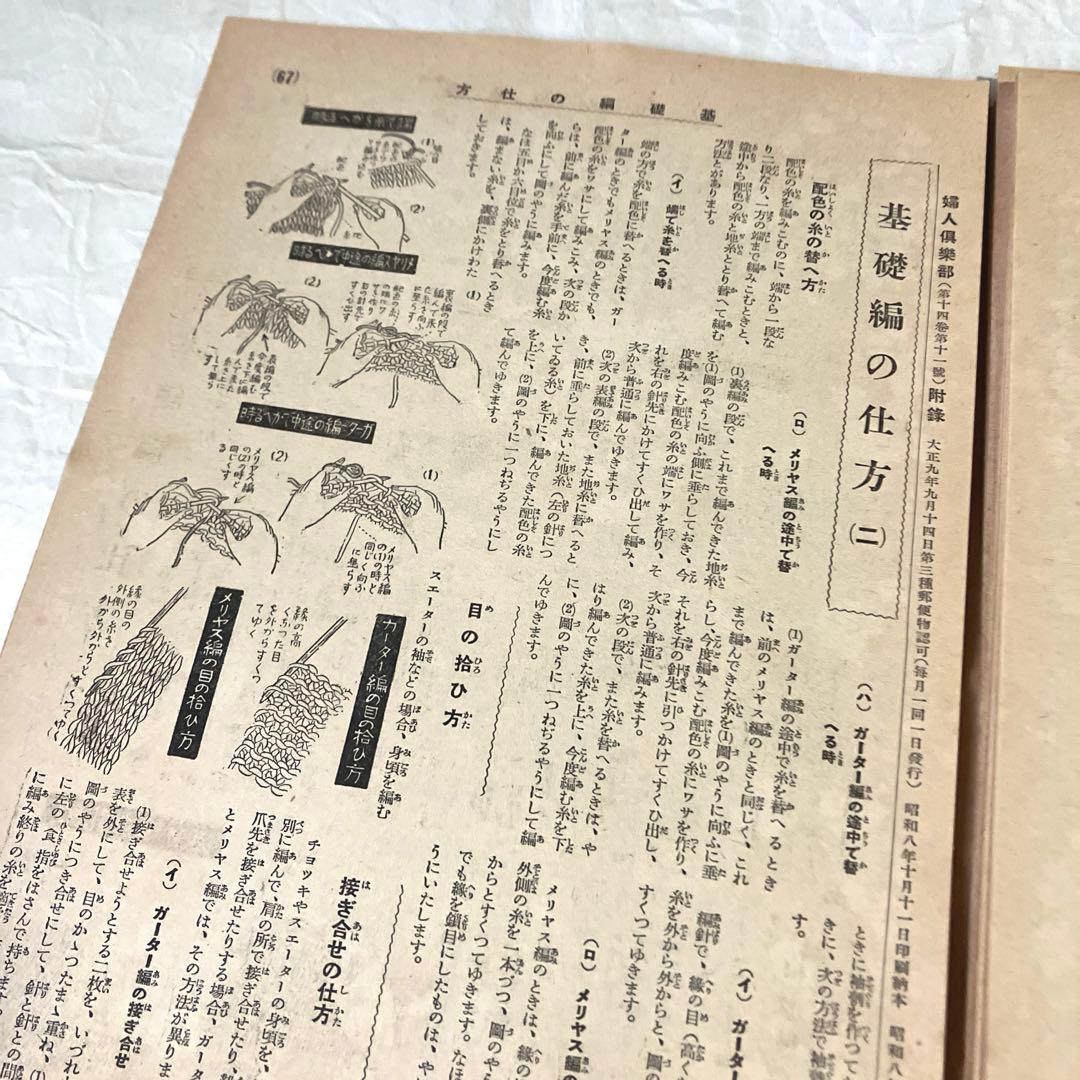 婦人俱樂部(第十四卷第十一號)附錄 大正九年九月十四日第三種郵便物認可(每月一回一日發行) 昭和八年十月十一日印刷納本 昭和八
(67)
基礎編の仕方
基礎編の仕方(二)
配色の糸の替へ方
配色の糸を編みこむのに、端から一段な
り二段なり、一方の端まで編みこむときと、
途中から配色の糸と地糸ととり替へて編む
方法とがあります。
(イ) 端で糸を替へる時
端の方で糸を配色に替へるときは、ガー
ター編のときでもメリヤス編のときでも、
配色の糸をワサにして編みこみ、次の段か
らは、前に編んだ糸を手前に、今度編む糸
を向ふにして圖のやうに編みます。
なほ五目か六目位で糸をとり替へるとき
は、編まない糸を、裏側にかけわた
しておきます。
(ロ) メリヤス編の途中で替
へる時
(1)裏編の段で、これまで編んできた地糸
を(1)圖のやうに向ふ側に垂らしておき、今
度編みこむ配色の糸の端にワサを作り、そ
れを右の針先にかけてすくひ出して編み、
次から普通に編んでゆきます。
(2)次の表編の段で、また地糸に替へると
き、前に垂らしておいた地糸(左の針につ
いてゐる糸)を下に、編んできた配色の糸
を上に、(2)圖のやうに一つねぢるやうにし
て編んでゆきます。
(ハ) ガーター編の途中で替
へる時
(1)ガーター編の途中で糸を替へるとき
は、前のメリヤス編のときと同じく、これ
まで編んできた糸を(1)圖のやうに向ふに垂
らし、今度編みこむ配色の糸にワサを作り、
それを右の針先に引つかけてすくひ出し、
次から普通に編みます。
(2)次の段で、また糸を替へるときは、や
はり編んできた糸を上に、今度編む糸を下
に、(2)圖のやうに一つねぢるやうにして編
んでゆきます。
目の拾ひ方
スエーターの袖などの場合、身頃を編む
ときに袖刳を作つて
きに、次の方法で袖
す。
(イ) ガーター
編針で、緣の目(高く
糸を外から外からと、圖の
すくつてゆきます。
(ロ) メリヤス編
メリヤス編のときは、緣の
外側の糸を一本づつ、圖のや
からとすくつてゆきます。なほ
でも緣を鎖目にしたものは、や
うにいたします。
接ぎ合せの仕方
チョッキやスエーターの身頃を、
別に編んで、肩の所で接ぎ合せたり、
爪先を接ぎ合せたりする場合、ガータ
とメリヤス編では、その方法が異りま
(イ) ガーター編の接ぎ合せ
(1)接ぎ合せようとする二枚を、いづれ
表を外にして、目のかゝつたまゝ重ね、(1)
圖のやうにつき合せにして、針と針との間
に左の食指をはさんで持ちます。
に編み終りの糸を
端で糸をかへる時
(1)
(2)
メリヤス編の途中でかへる時
(1)
裏編の段で
編んで來
た糸を向ふ
に垂らす
(2)
表編の段で
ガーター編の途中でかへる時
(1)
メリヤス編
の(1)の時と
同じく向ふ
に垂らす
(2)
メリヤス編
の(2)の時と
同じくす
る
ガーター編の目の拾ひ方
緣の高
くなつた目
を外からすくつ
てゆく
メリヤス編の目の拾ひ方
緣の目の
外側の糸を
外から外からとすくつてゆく